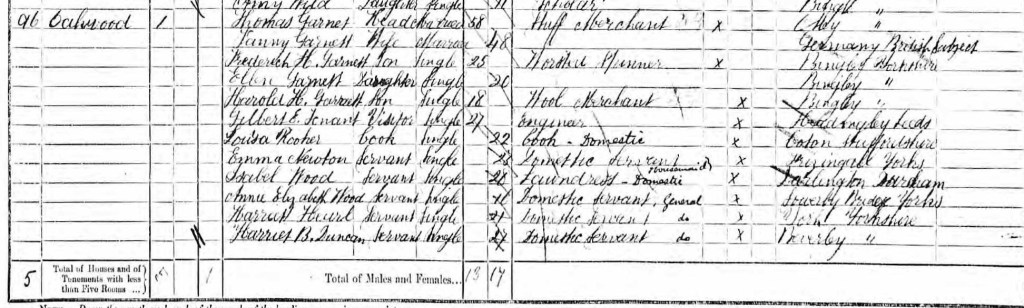 Daughter Single 11 Scholar Bingley "
96 Oakwood 1 Thomas Garnet Head Married 58 Stuff Merchant x "
Fanny Garnett Wife Married 48 Germany British Subject
Frederick H. Garnett Son Single 25 Worsted Spinner x Bingley Yorkshire
Ellen Garnett Daughter Single 20 Bingley "
Harold H. Garnett Son Single 18 Wool Merchant x Bingley "
Gilbert E. Tenant Visitor Single 27 Engineer x Headingley Leeds
Louisa Rooker Cook Single 22 Cook - Domestic x Staffordshire
Emma Newton Servant Single 28 Domestic Servant (Housemaid) x Yorks
Isabel Wood Servant Single 28 Laundress - Domestic x Darlington Durham
Annie Elizabeth Wood Servant Single Domestic Servant, General x Sowerby Bridge Yorks
Harriet Servant Single 21 Domestic Servant do x York Yorkshire
Harriet B. Duncan Servant Single 27 Domestic Servant do x "
5 Total of Houses and of Tenements with less than Five Rooms ... 1 Total of Males and Females... 13 17